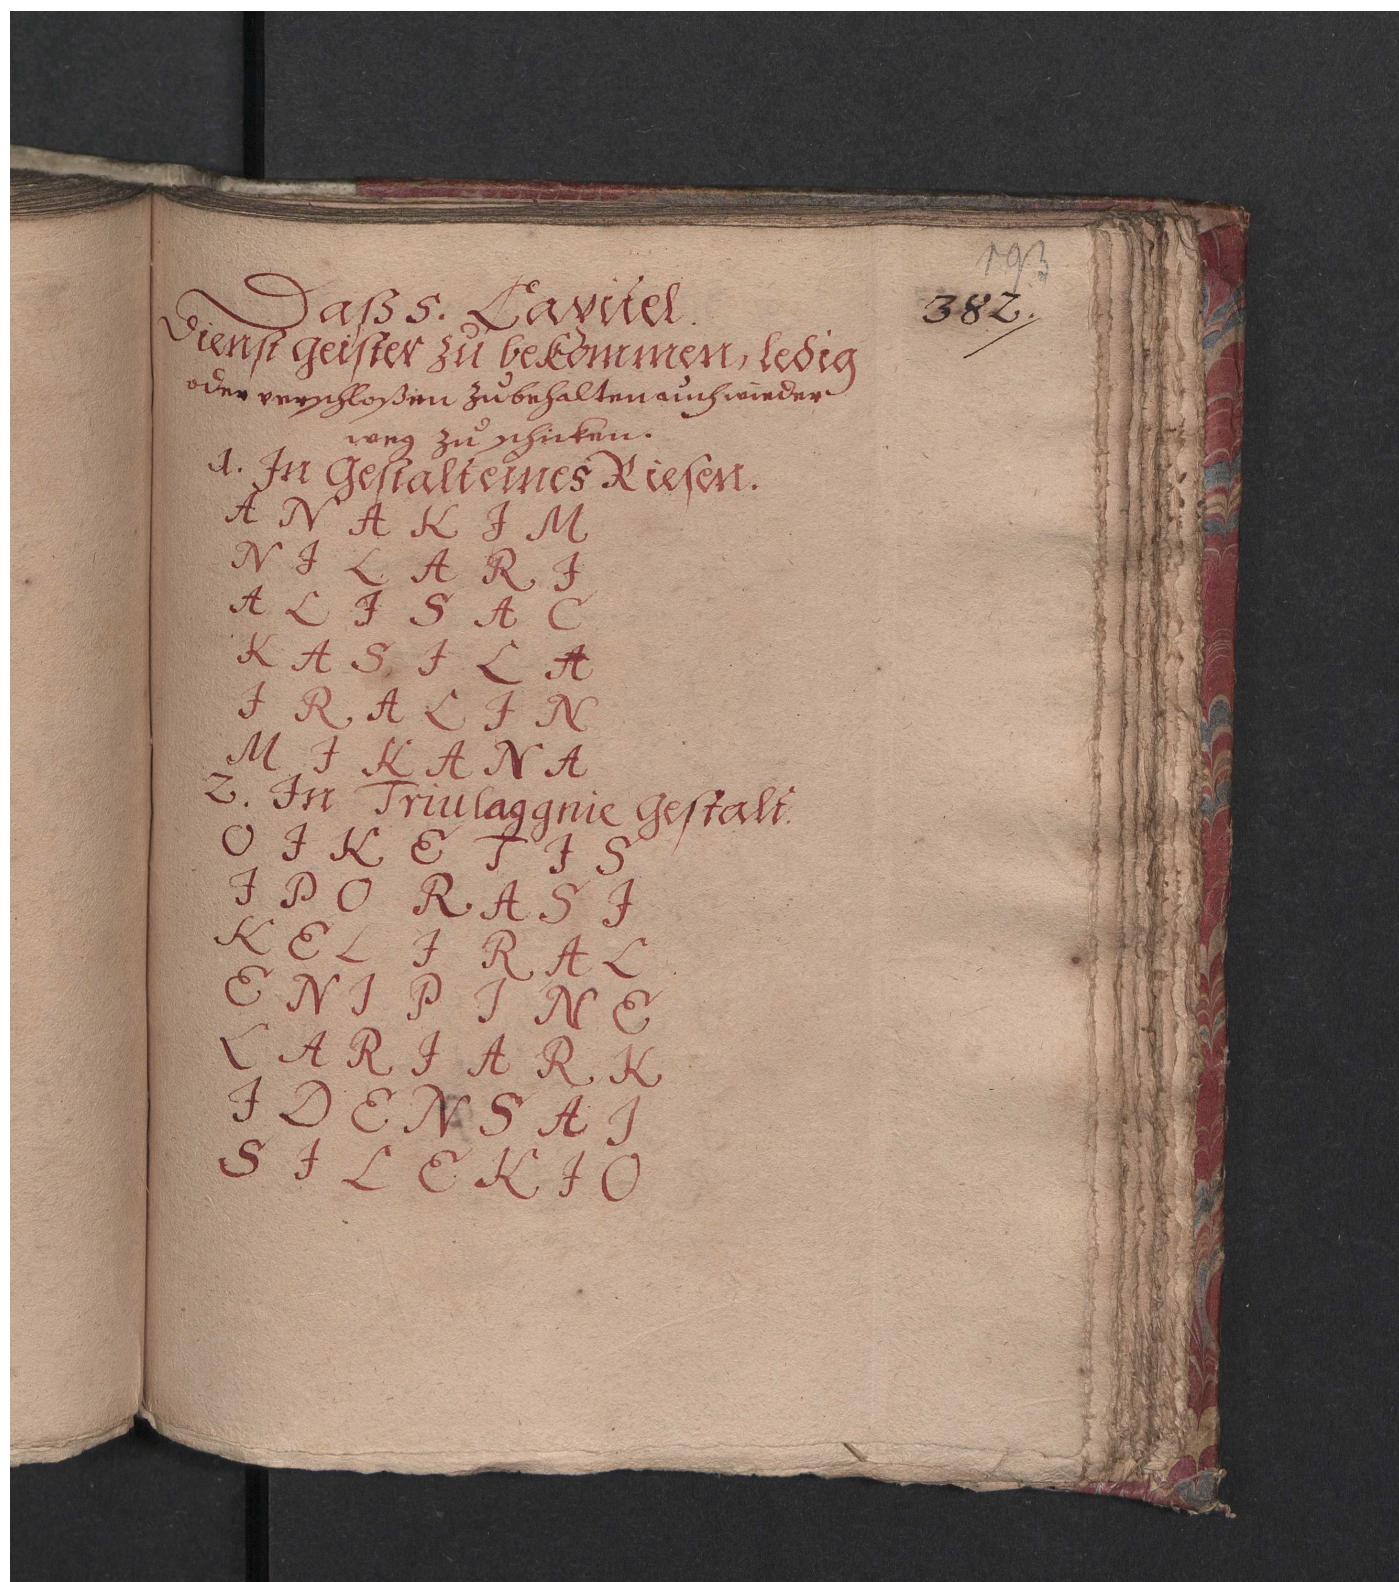 193
382.
Daß 5. Capitel.
Dienst geister zu bekommen, ledig
oder verschloßen zubehalten auch wieder
weg zu schicken.
1. In Gestalt eines Riesen.
A N A K I M
N I L A R I
A L I S A C
K A S I L A
I R A L I N
M I K A N A
2. In Triulaggnie gestalt.
O I K E T I S
I P O R A S I
K E L I R A L
E N I P I N E
L A R I A R K
I D E N S A I
S I L E K I O